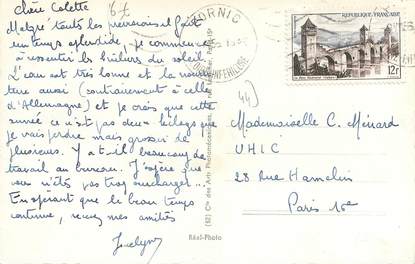 Chère Colette
67
Malgré toutes les prévisions il fait
un temps splendide, je commence
à ressentir les brûlures du soleil
L'eau est très bonne et la nourri-
ture aussi (contrairement à celle
d'Allemagne) et je crois que cette
année ce n'est pas deux kilogs que
je vais perdre mais grossir de
plusieurs. Y a-t-il beaucoup de
travail au bureau. J'espère que
vous n'êtes pas trop surchargée...
En espérant que le beau temps
continue, recevez mes amitiés
Jocelyne
PORNIC
LOIRE INFERIEURE
REPUBLIQUE FRANÇAISE
12f
44)
Mademoiselle C. Ménard
UHIC
28 Rue Hamelin
Paris 16e
Réal-Photo